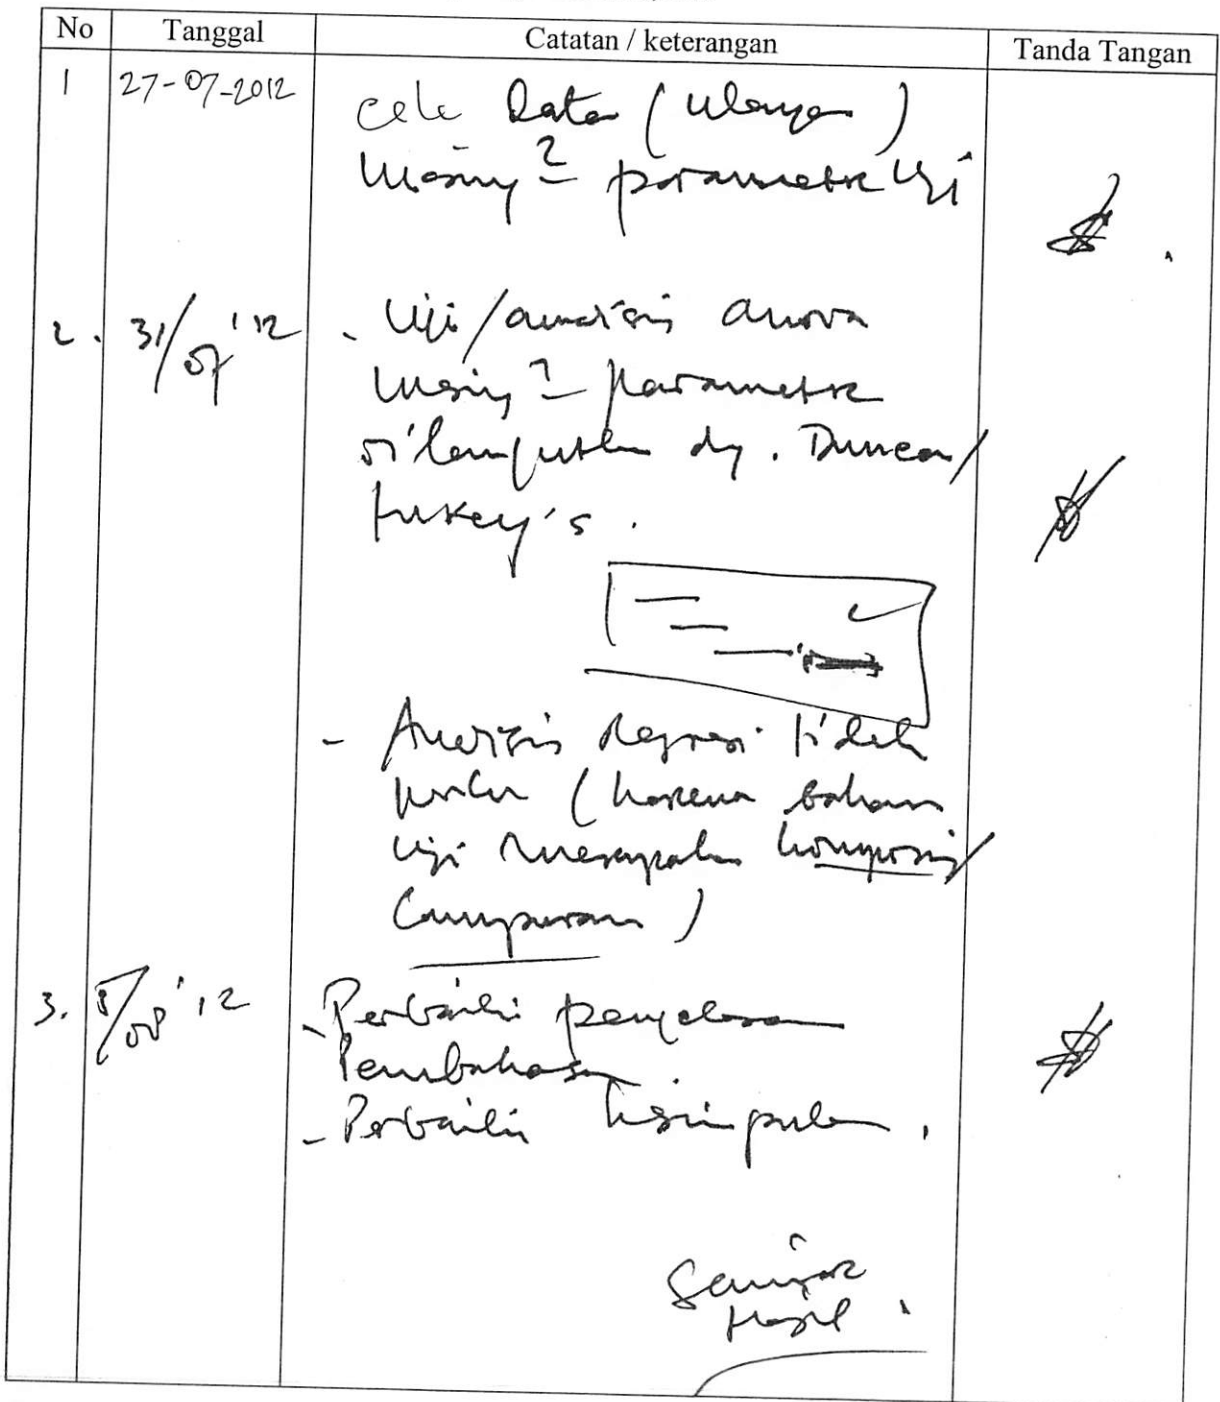 No Tanggal Catatan / keterangan Tanda Tangan
1 27-07-2012 cek Data (ulangan)
masing2 parameter uji
2. 31/07 '12 - Uji/analisis anova
masing2 parameter
dilanjutkan dg. Duncan/
tukey's.
- Analisis regresi tidak
perlu (karena bahan
uji merupakan komposisi/
Campuran)
3. 8/08 '12 - Perbaiki penjelasan
Pembahasan
- Perbaiki kesimpulan.
Seminar
Hasil.